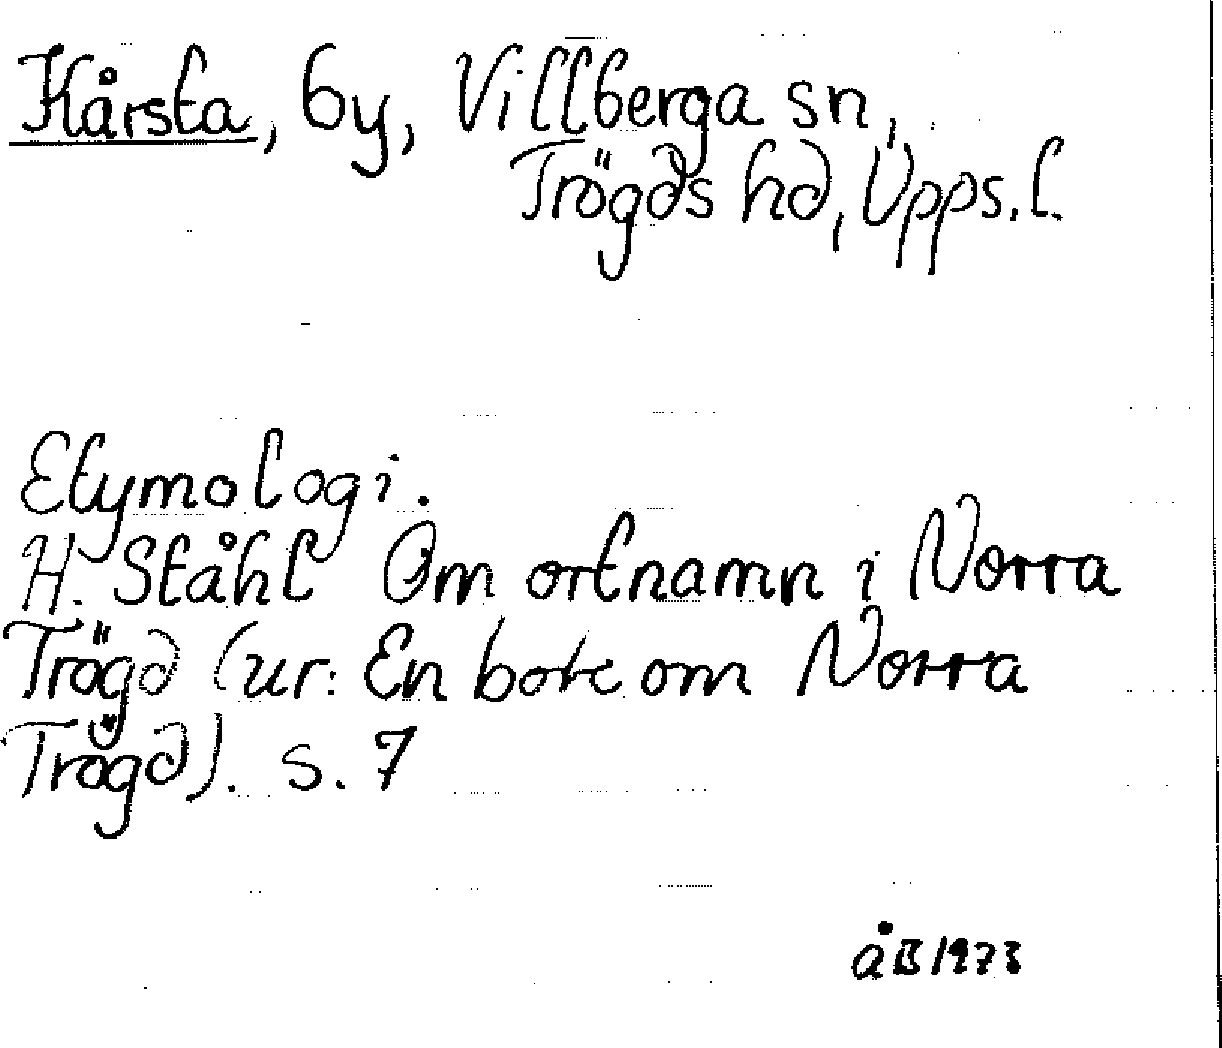 Kårsta, by, Villberga sn,
Trögds hd, Upps. l.
Etymologi.
H. Ståhl Om ortnamn i Norra
Trögd (ur: En bok om Norra
Trögd). s. 7
åB 1973